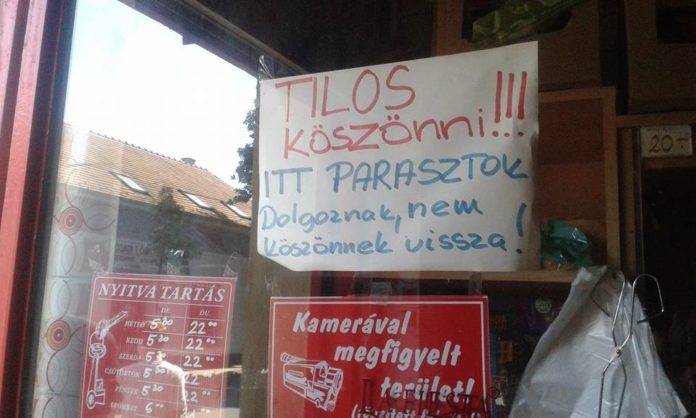 TILOS
köszönni!!!
ITT PARASZTOK
Dolgoznak, nem
köszönnek vissza!
20.-
NYITVA TARTÁS
DE. DU.
HÉTFŐ 5³⁰ 22⁰⁰
KEDD 5³⁰ 22⁰⁰
SZERDA 5³⁰ 22⁰⁰
CSÜTÖRTÖK 5³⁰ 22⁰⁰
PÉNTEK 5³⁰ 22⁰⁰
SZOMBAT 6⁰⁰ 22⁰⁰
Kamerával
megfigyelt
terület!